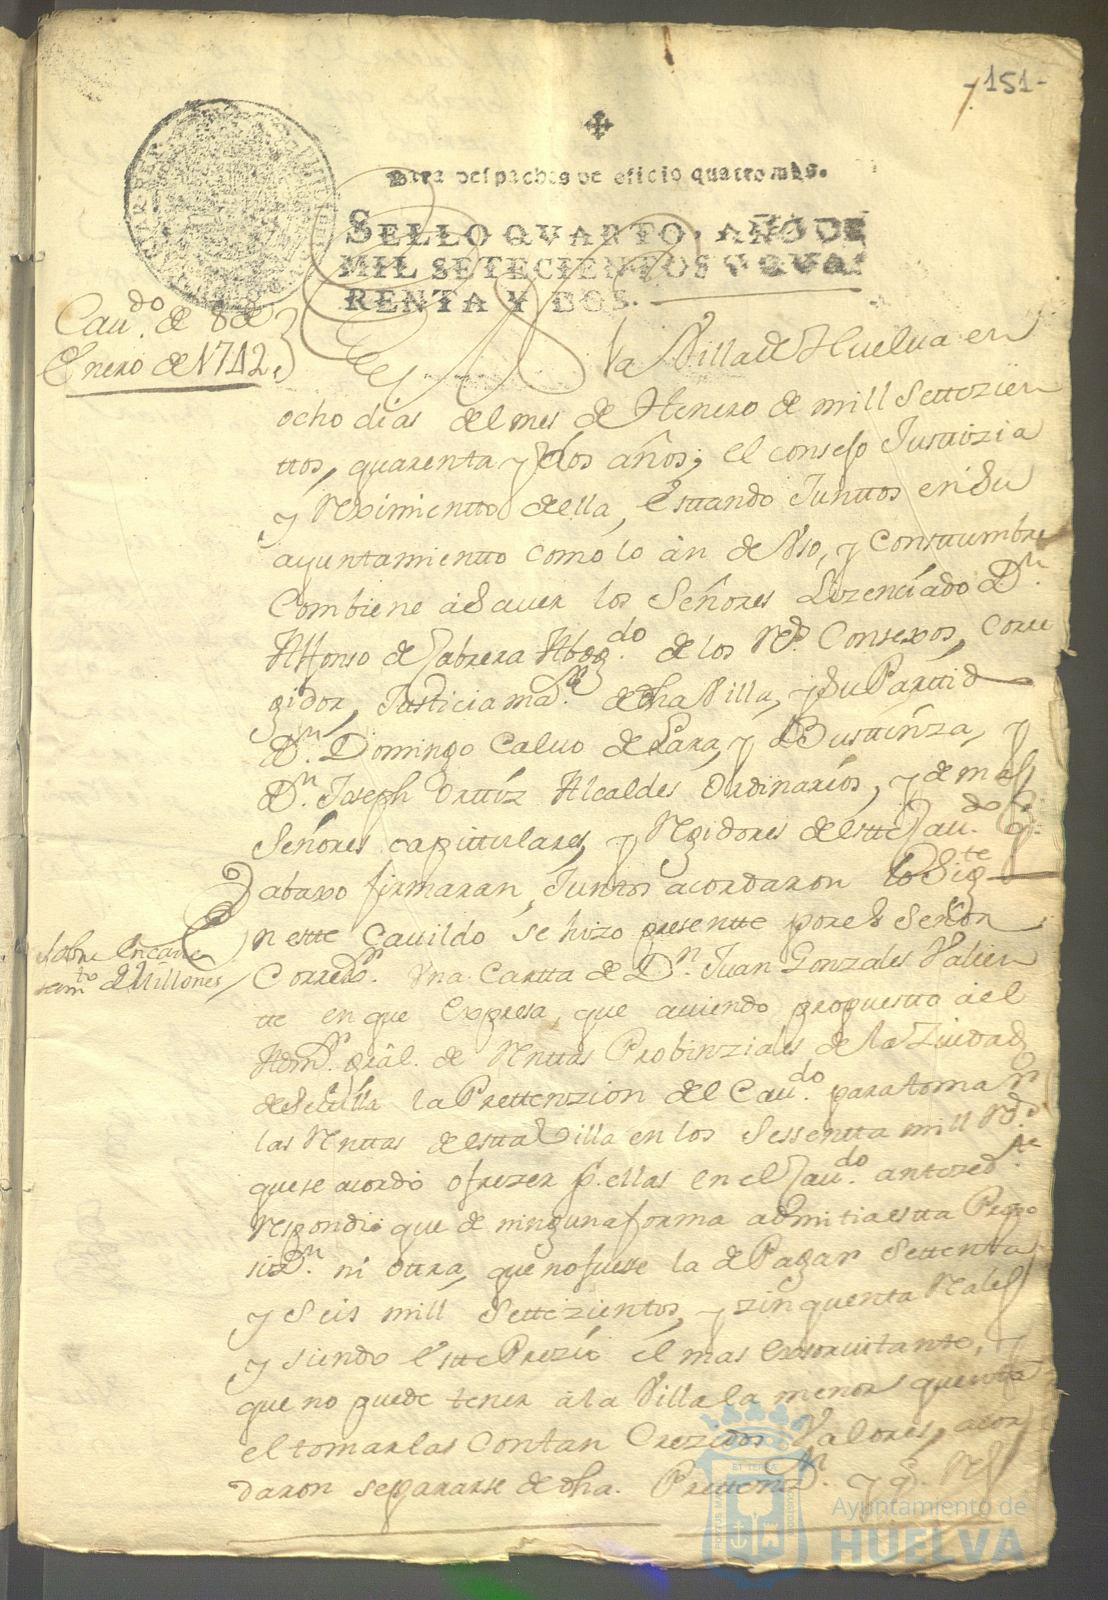 -151-
Para despachos de oficio quatro mrs.
SELLO QVARTO, AÑO DE
MIL SETECIENTOS Y QVA-
RENTA Y DOS.
Cau.do de 8 de
Enero de 1742.
En la Villa de Huelua en
ocho dias del mes de Henero de mill Settezien
ttos, quarenta y dos años; el consejo Justtizia
y Reximientto della, esttando Junttos en su
ayuntamientto como lo àn de Vso, y Consttumbre
Combiene à Sauer los Señores Lizenciado D.n
Alfonso de Cabrera Abog.do de los R.s Consexos, Corre
gidor, Justicia ma.r de dha Villa, y su Parttid
D.n Domingo Caluo de Lara, y Busttinza, y
D.n Joseph Orttiz Alcaldes Ordinarios, y demas
Señores capittulares, y Rexidores de estte Cau.do q.
abaxo firmaran, Junttos acordaron lo Sig.te
Sobre Encaue
zam.to de Millones
En estte Cauildo se hizo presentte por el Señor
Correx.r Vna Cartta de D.n Juan Gonzales Valien
tte en que Expresa, que auiendo propuestto àel
Adm.r gral. de Renttas Probinziales de la Ziudad
de Seuilla la Prettenzion del Cau.do para tomar
las Renttas de estta Villa en los Sessentta mill R.s
que se acordò ofrezer p. ellas en el Cau.do antezed.te
respondiò que de ninguna forma admitia estta Propo
siz.n ni ottra, que no fuesse la de Pagar Settenta
y Seis mill Settezientos, y zinquenta Reales
y siendo estte Prezio el mas Exsorvitante, y
que no puede tener à la Villa la menor quentta
el tomarlas Con tan Crezidos Valores, acor
daron separarse de dha. Prettenz.n y q.
Ayuntamiento de
HUELVA